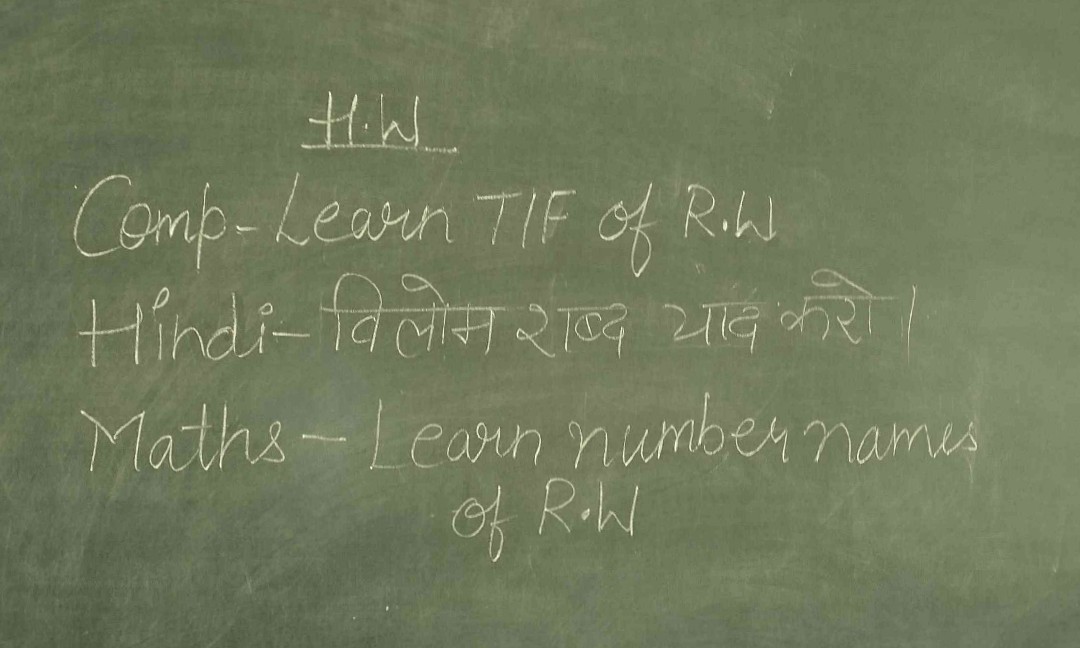 H.W
Comp-Learn T/F of R.W
Hindi-विलोम शब्द याद करो।
Maths-Learn number names
of R.W